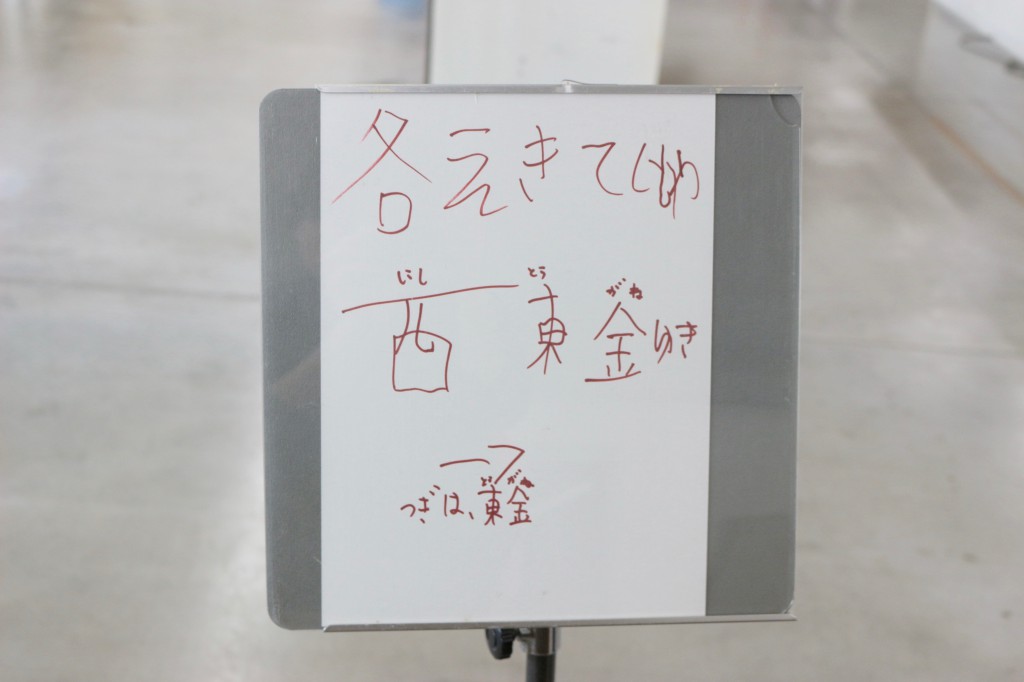 各えきてい車
にし とう がね
西東金ゆき
→
とうがね
つぎは、東金